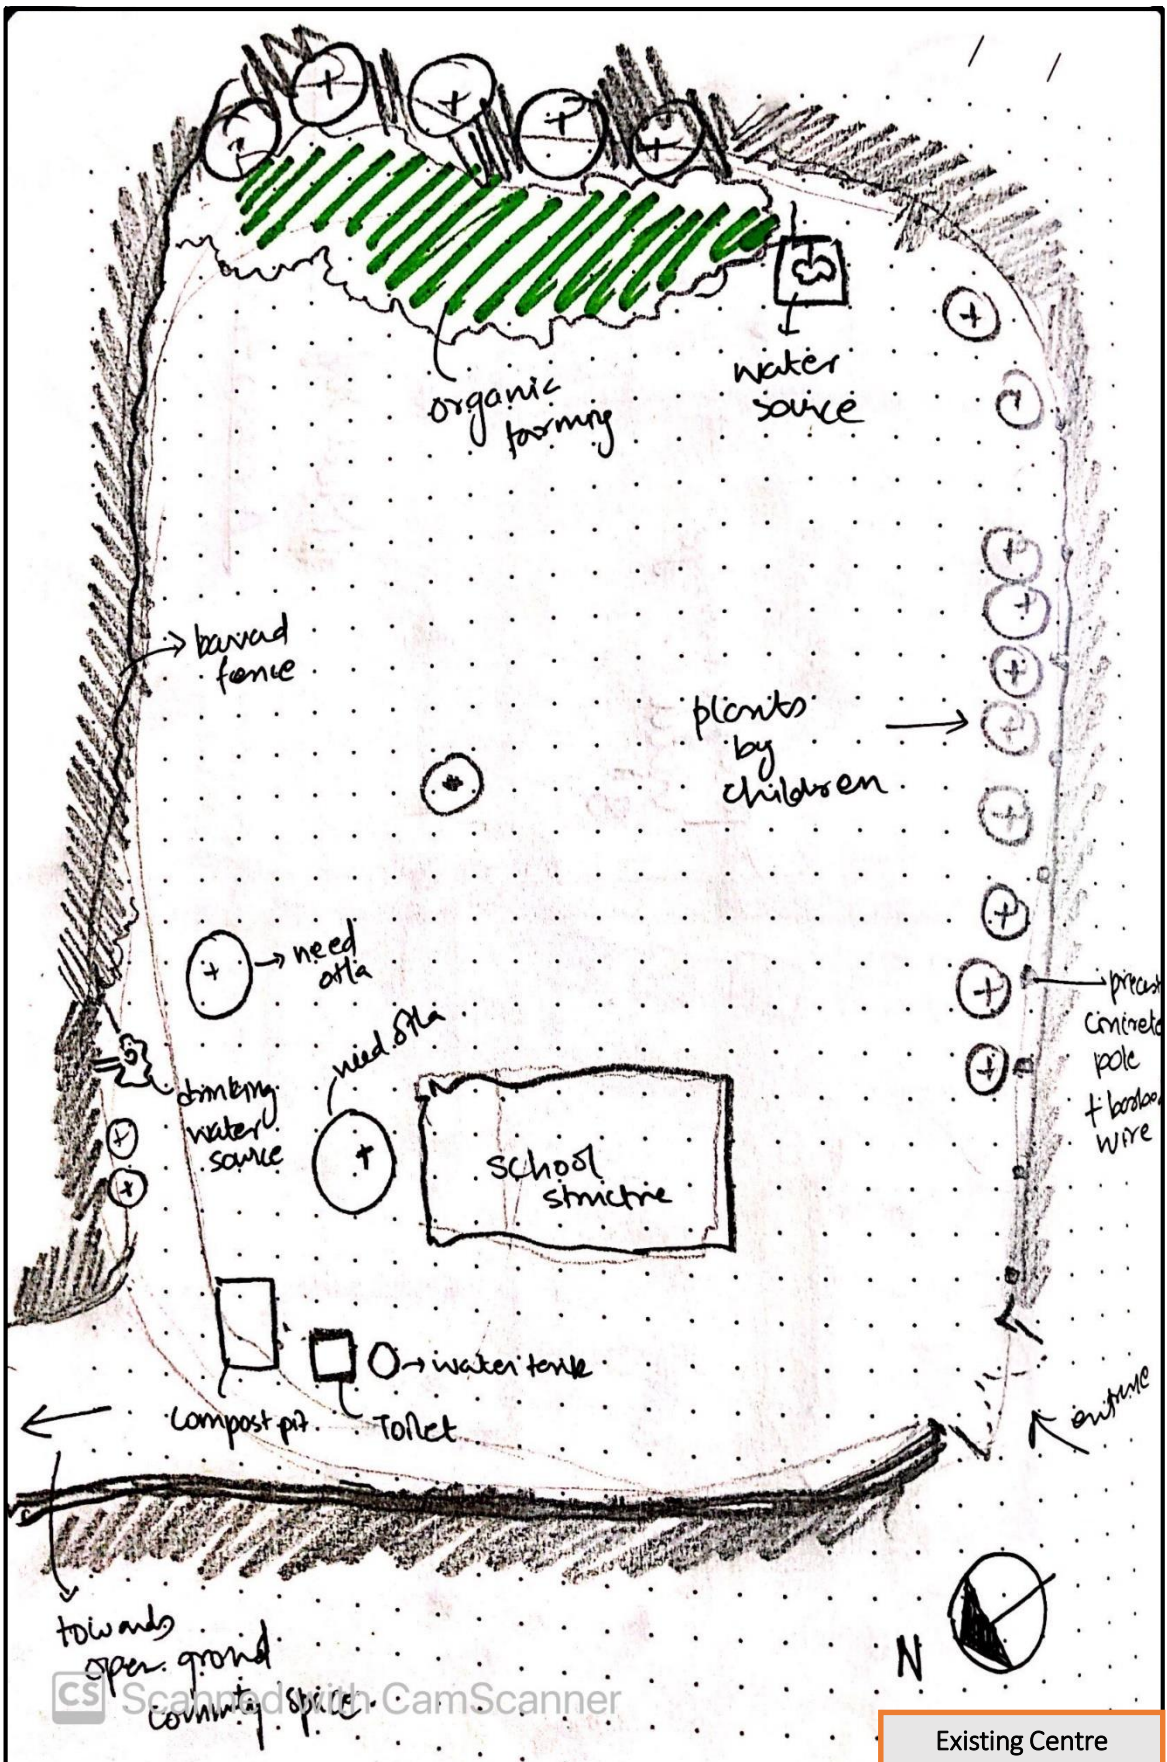 organic
farming
water
source
bavad
fence
plants
by
children
need
otla
need otla
drinking
water
source
school
structure
precast
concrete
pole
+
wire
water tank
compost pit
Toilet
entrance
towards
open ground
community space
N
CS Scanned with CamScanner
Existing Centre